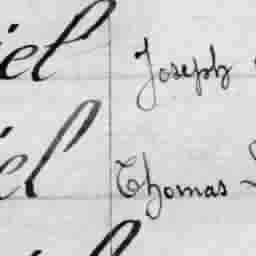 iel Joseph
iel Thomas